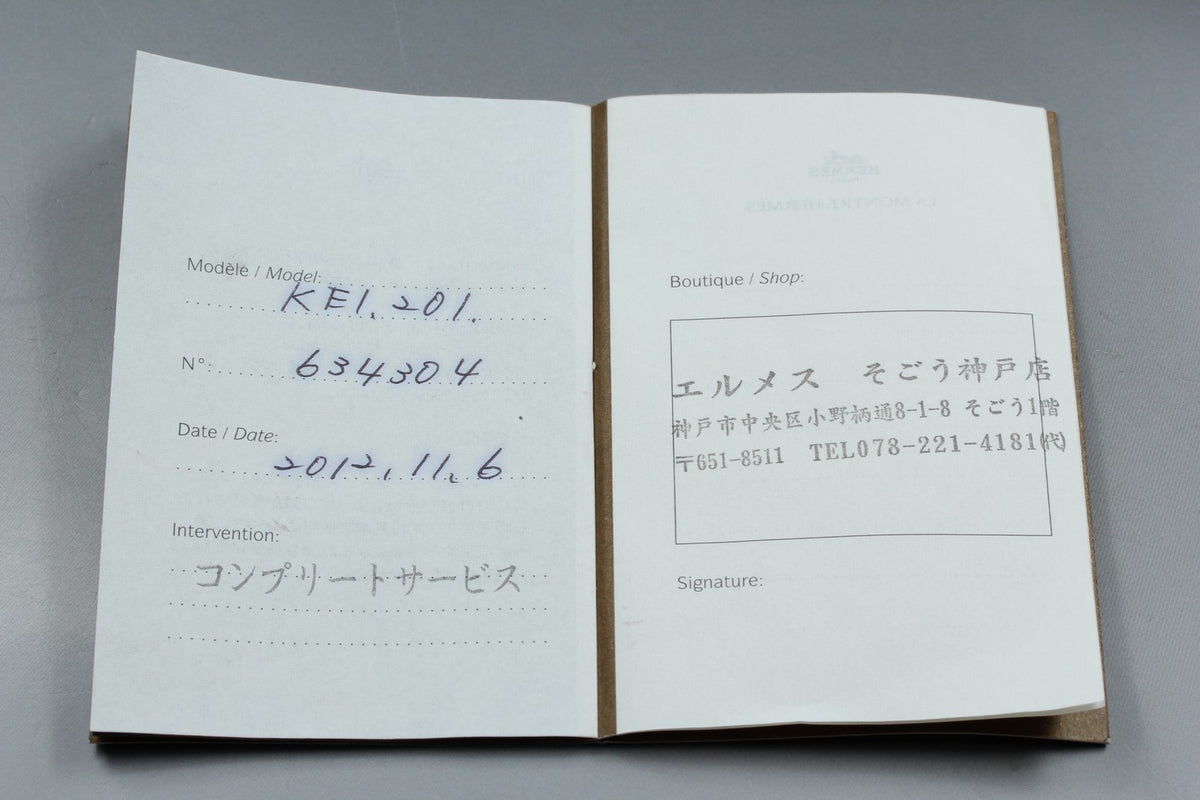 Modèle / Model:
KE1.201.
N°:
634304
Date / Date:
2012.11.6
Intervention:
コンプリートサービス
HERMES
LA MONTRE HERMES
Boutique / Shop:
エルメス そごう神戸店
神戸市中央区小野柄通8-1-8 そごう1階
〒651-8511 TEL078-221-4181(代)
Signature: